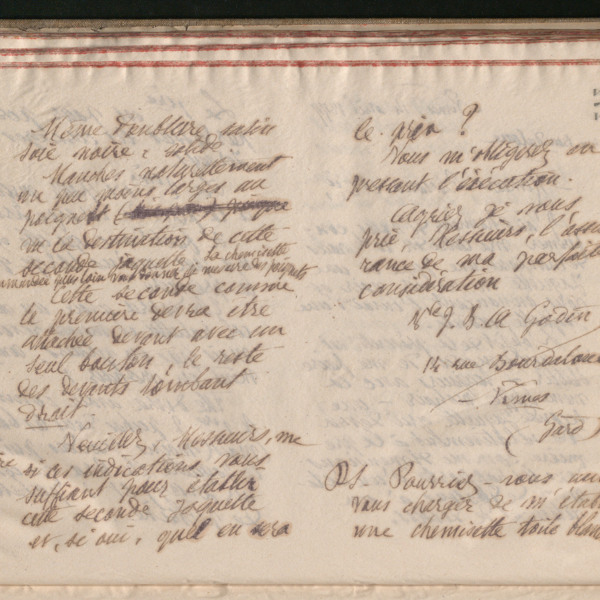 Même doublure, satin
soie noire, solide.
Manches naturellement
un peu moins larges au
poignet
vu la destination de cette
seconde jaquette. La chemisette
commandée plus loin vous donne la mesure des poignets
Cette seconde comme
la première devra être
attachée devant avec un
seul bouton, le reste
des devants tombant
droit.
Veuillez, Messieurs, me
dire si ces indications vous
suffisent pour établir
cette seconde jaquette
et, si oui, quel en sera
le prix ?
Vous m'obligerez en
pressant l'exécution.
Agréez je vous
prie, Messieurs, l'assu
rance de ma parfaite
considération
Vve J. B. A. Godin
14 rue Bourdaloue
Nîmes
(Gard)
PS. Pourriez-vous
vous charger de m'établir
une chemisette toile blan